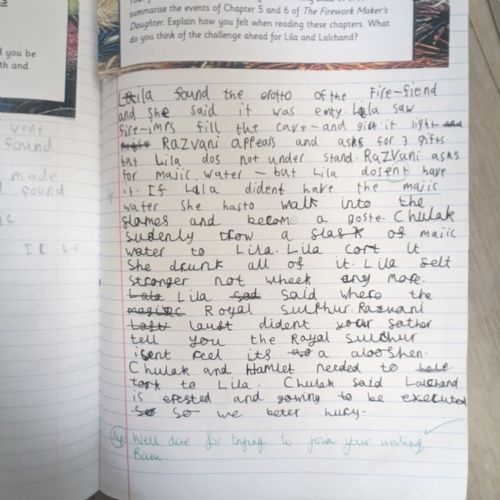 summarise the events of Chapter 5 and 6 of The Firework Maker's
Daughter. Explain how you felt when reading these chapters. What
do you think of the challenge ahead for Lila and Lalchand?
d you be
th and
went
found
made
found
if
Lila found the grotto of the Fire-fiend
and she said it was enty. Lila saw
fire-imps fill the cave-and give it light
RAZVANI appeals and asks for 3 gifts
but Lila dos not under stand. RAZVANI asks
for majic water - but Lila dosent have
it. If Lila dident have the majic
water she hasto walk into the
flames and become a goste. Chulak
sudenly trow a flask of majic
water to Lila. Lila cort it
She drunk all of it. Lila felt
stronger not wheek any more.
Lila said where the
Royal Sulphur. Razvani
lauft dident your father
tell you the Royal Sulphur
isent reel its a alooshen.
Chulak and Hamlet needed to
tork to Lila. Chulak said Lalchand
is erested and gowing to be executed
So we beter hury.
Well done for trying to join your writing,